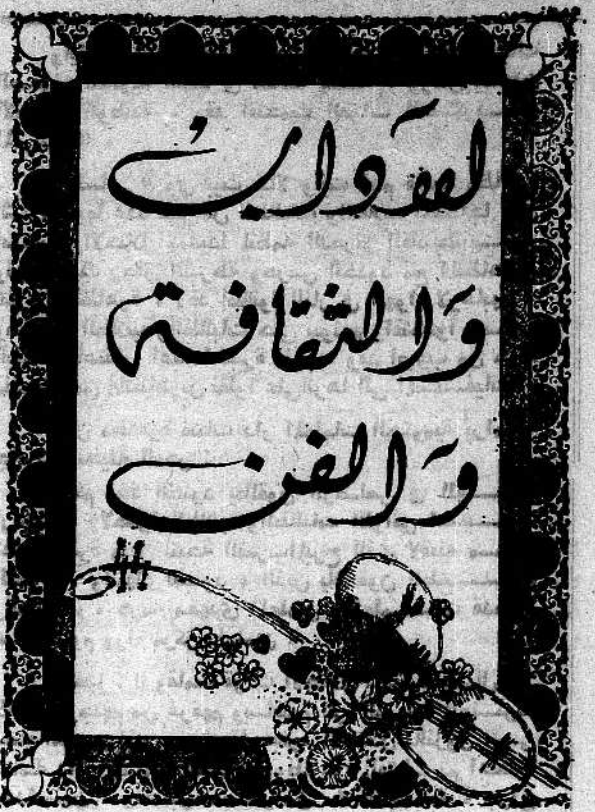 الآداب
وَالثقافة
وَالفن